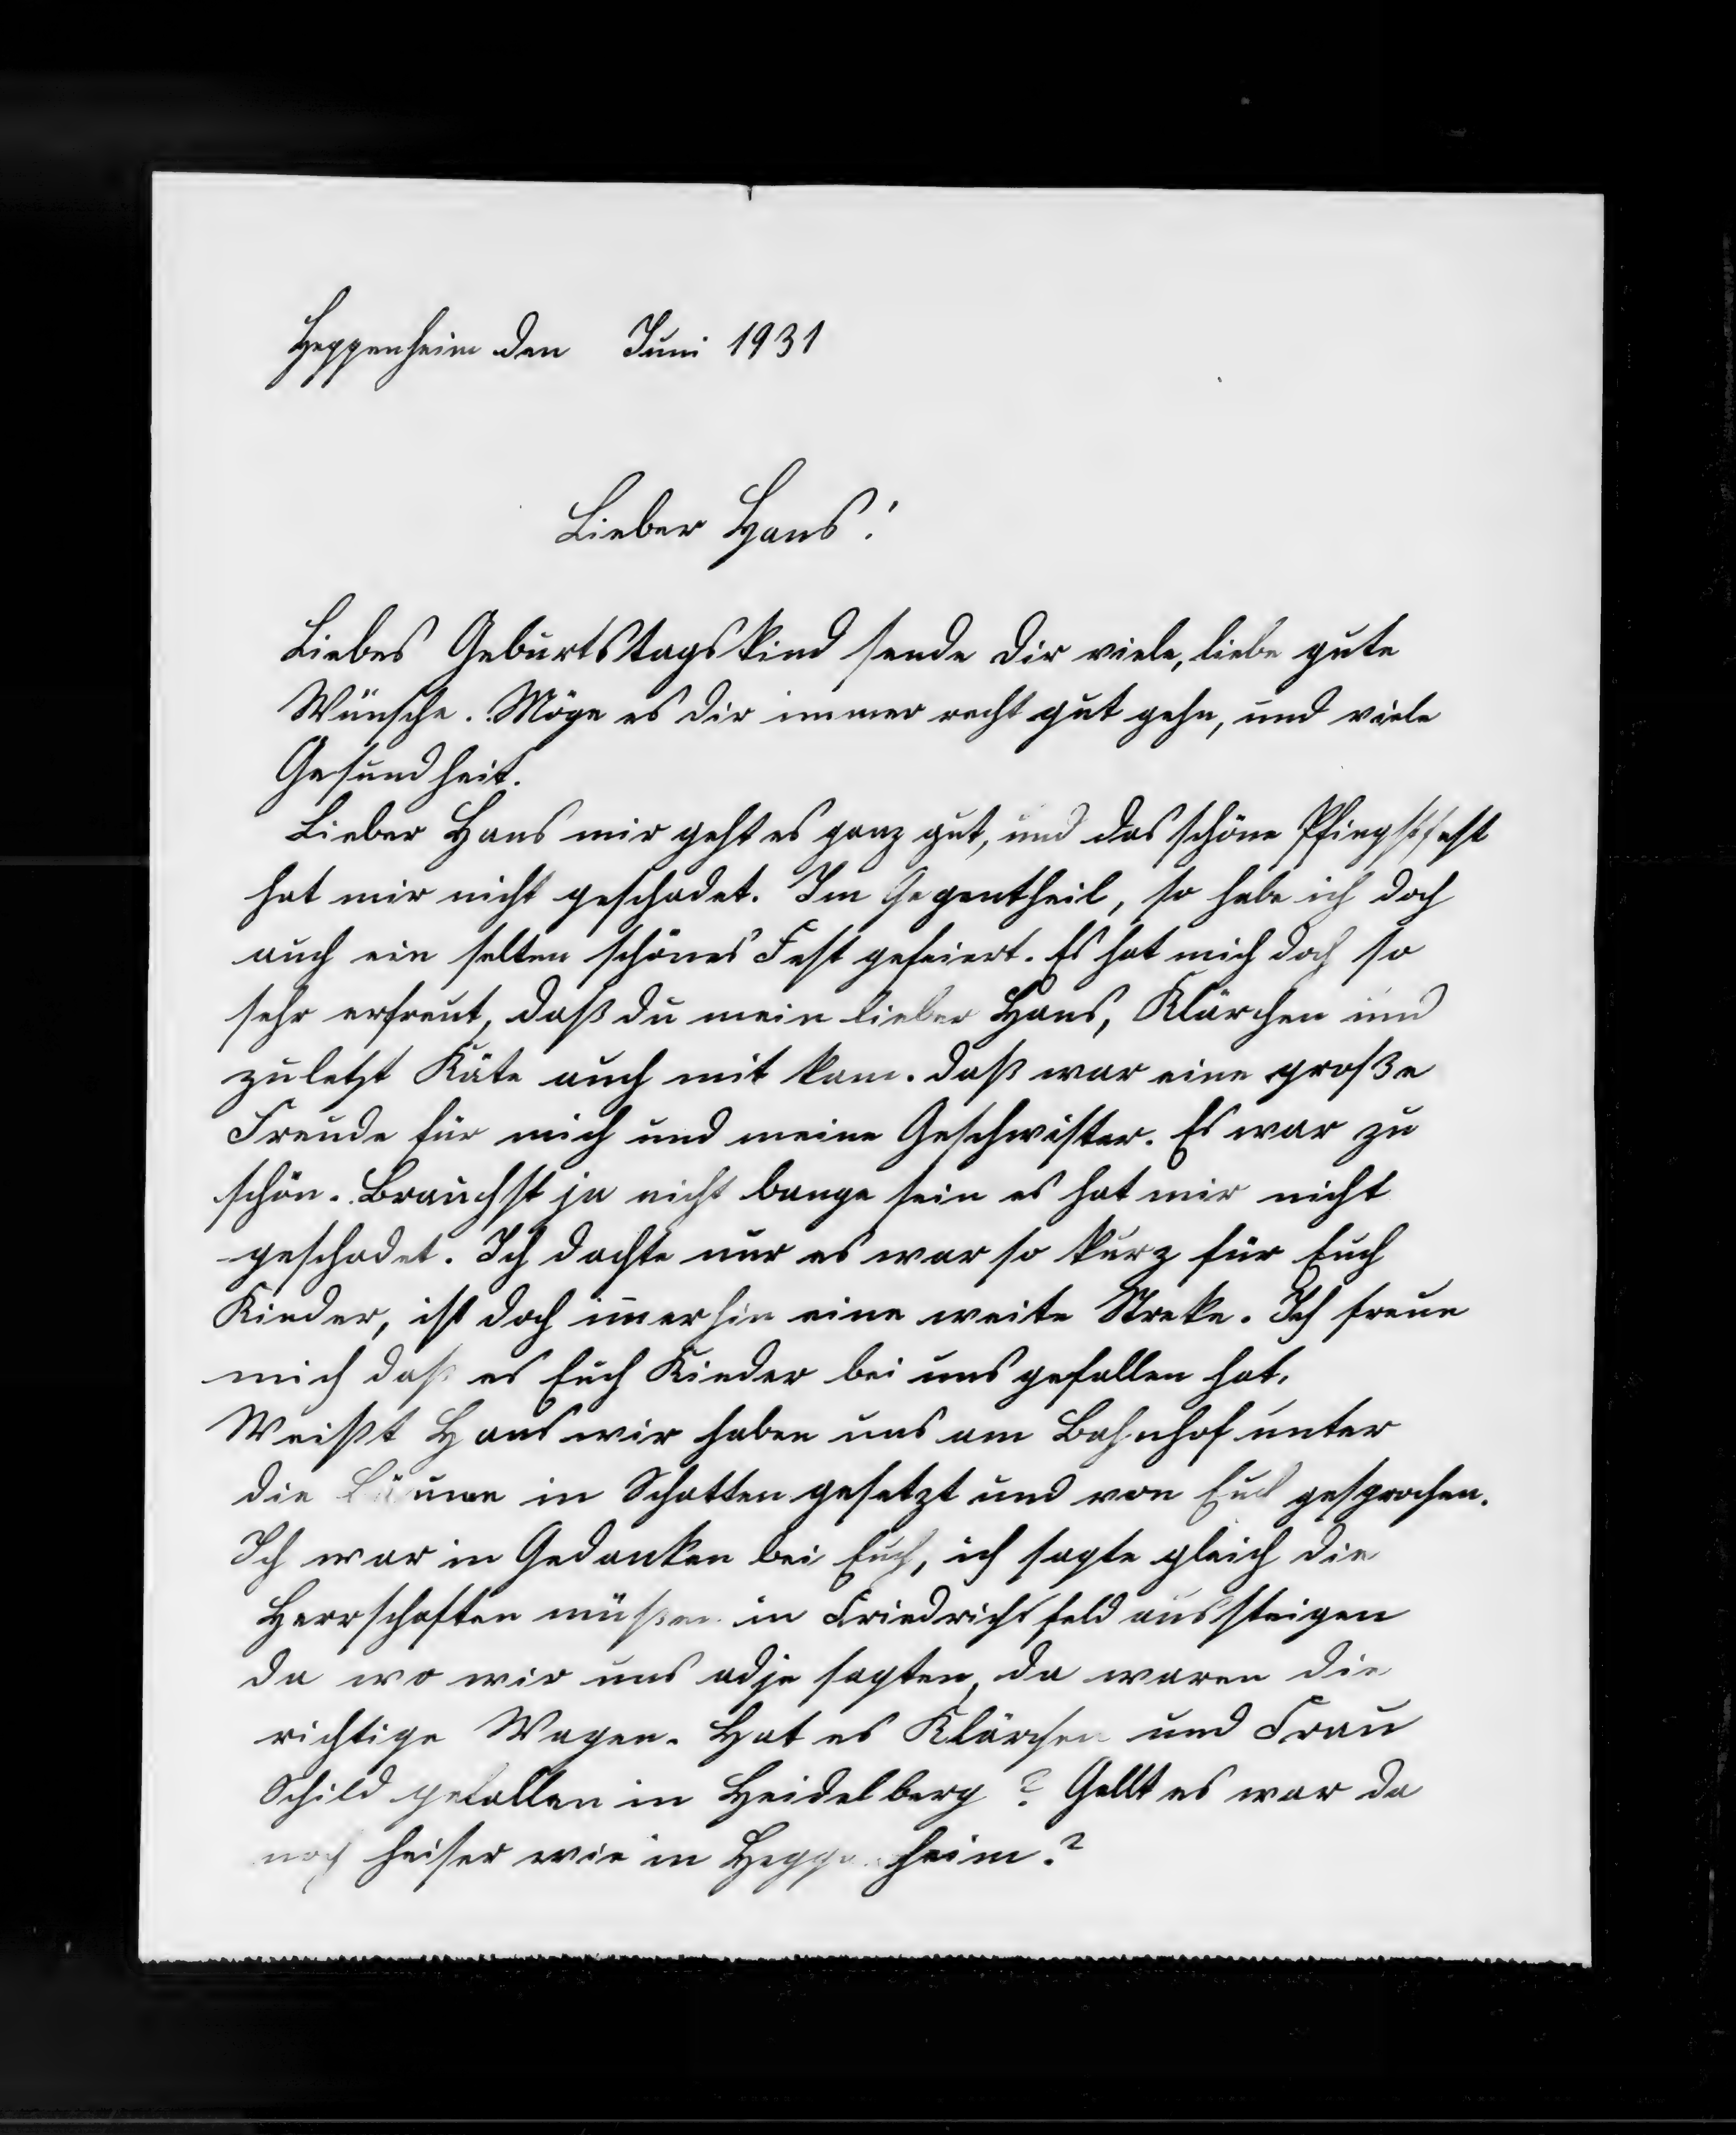 Heppenheim den Juni 1931
Lieber Hans!
Liebes Geburtstagskind sende dir viele, liebe gute
Wünsche. Möge es dir immer recht gut gehn, und viele
Gesundheit.
Lieber Hans mir geht es ganz gut, und das schöne Pfingstfest
hat mir nicht geschadet. Im Gegentheil, so habe ich doch
auch ein selten schönes Fest gefeiert. Es hat mich doch so
sehr erfreut, daß du mein lieber Hans, Klärchen und
zuletzt Käte auch mit kam. daß war eine große
Freude für mich und meine Geschwister. Es war zu
schön. Brauchst ja nicht bange sein es hat mir nicht
geschadet. Ich dachte nur es war so kurz für Euch
Kinder, ist doch im̅erhin eine weite Streke. Ich freue
mich daß es Euch Kinder bei uns gefallen hat.
Weißt Hans wir haben uns am Bahnhof unter
die Bäume in Schatten gesetzt und von Euch gesprochen.
Ich war in Gedanken bei Euch, ich sagte gleich die
Herrschaften müßen in Friedrichsfeld aussteigen
da wo wir uns adje sagten, da waren die
richtige Wagen. Hat es Klärchen und Frau
Schild gefallen in Heidelberg? Gellt es war da
noch heiser wie in Heppenheim?